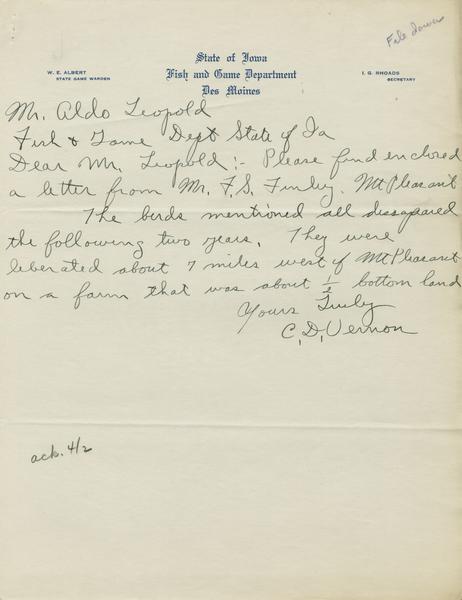 File Iowa
State of Iowa
W. E. ALBERT
STATE GAME WARDEN
Fish and Game Department
I. G. RHOADS
SECRETARY
Des Moines
Mr. Aldo Leopold
Fish & Game Dept State of Ia
Dear Mr. Leopold:- Please find enclosed
a letter from Mr. F.S. Finley. Mt Pleasant
The birds mentioned all dissapeared
the following two years. They were
liberated about 7 miles west of Mt Pleasant
on a farm that was about ½ bottom land
Yours Truly
C. D. Vernon
ack. 4/2